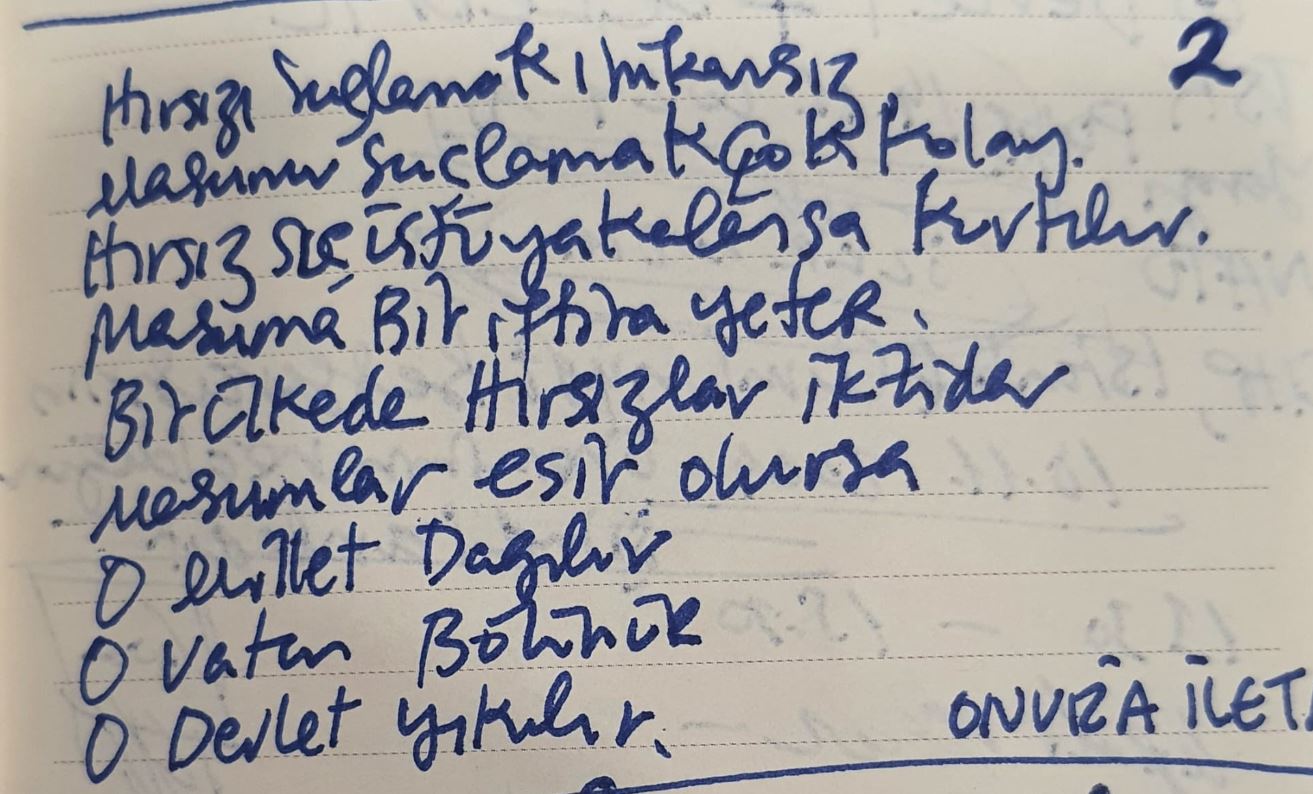 2
Hırsızı Suçlamak imkansız
Masumu Suçlamak Çok kolay.
Hırsız suç üstü yakalansa kurtulur.
Masuma Bir iftira yeter.
Bir ülkede Hırsızlar iktidar
Masumlar esir olursa
O Millet Dağılır
O Vatan Bölünür
O Devlet yıkılır.
ONURA İLET.